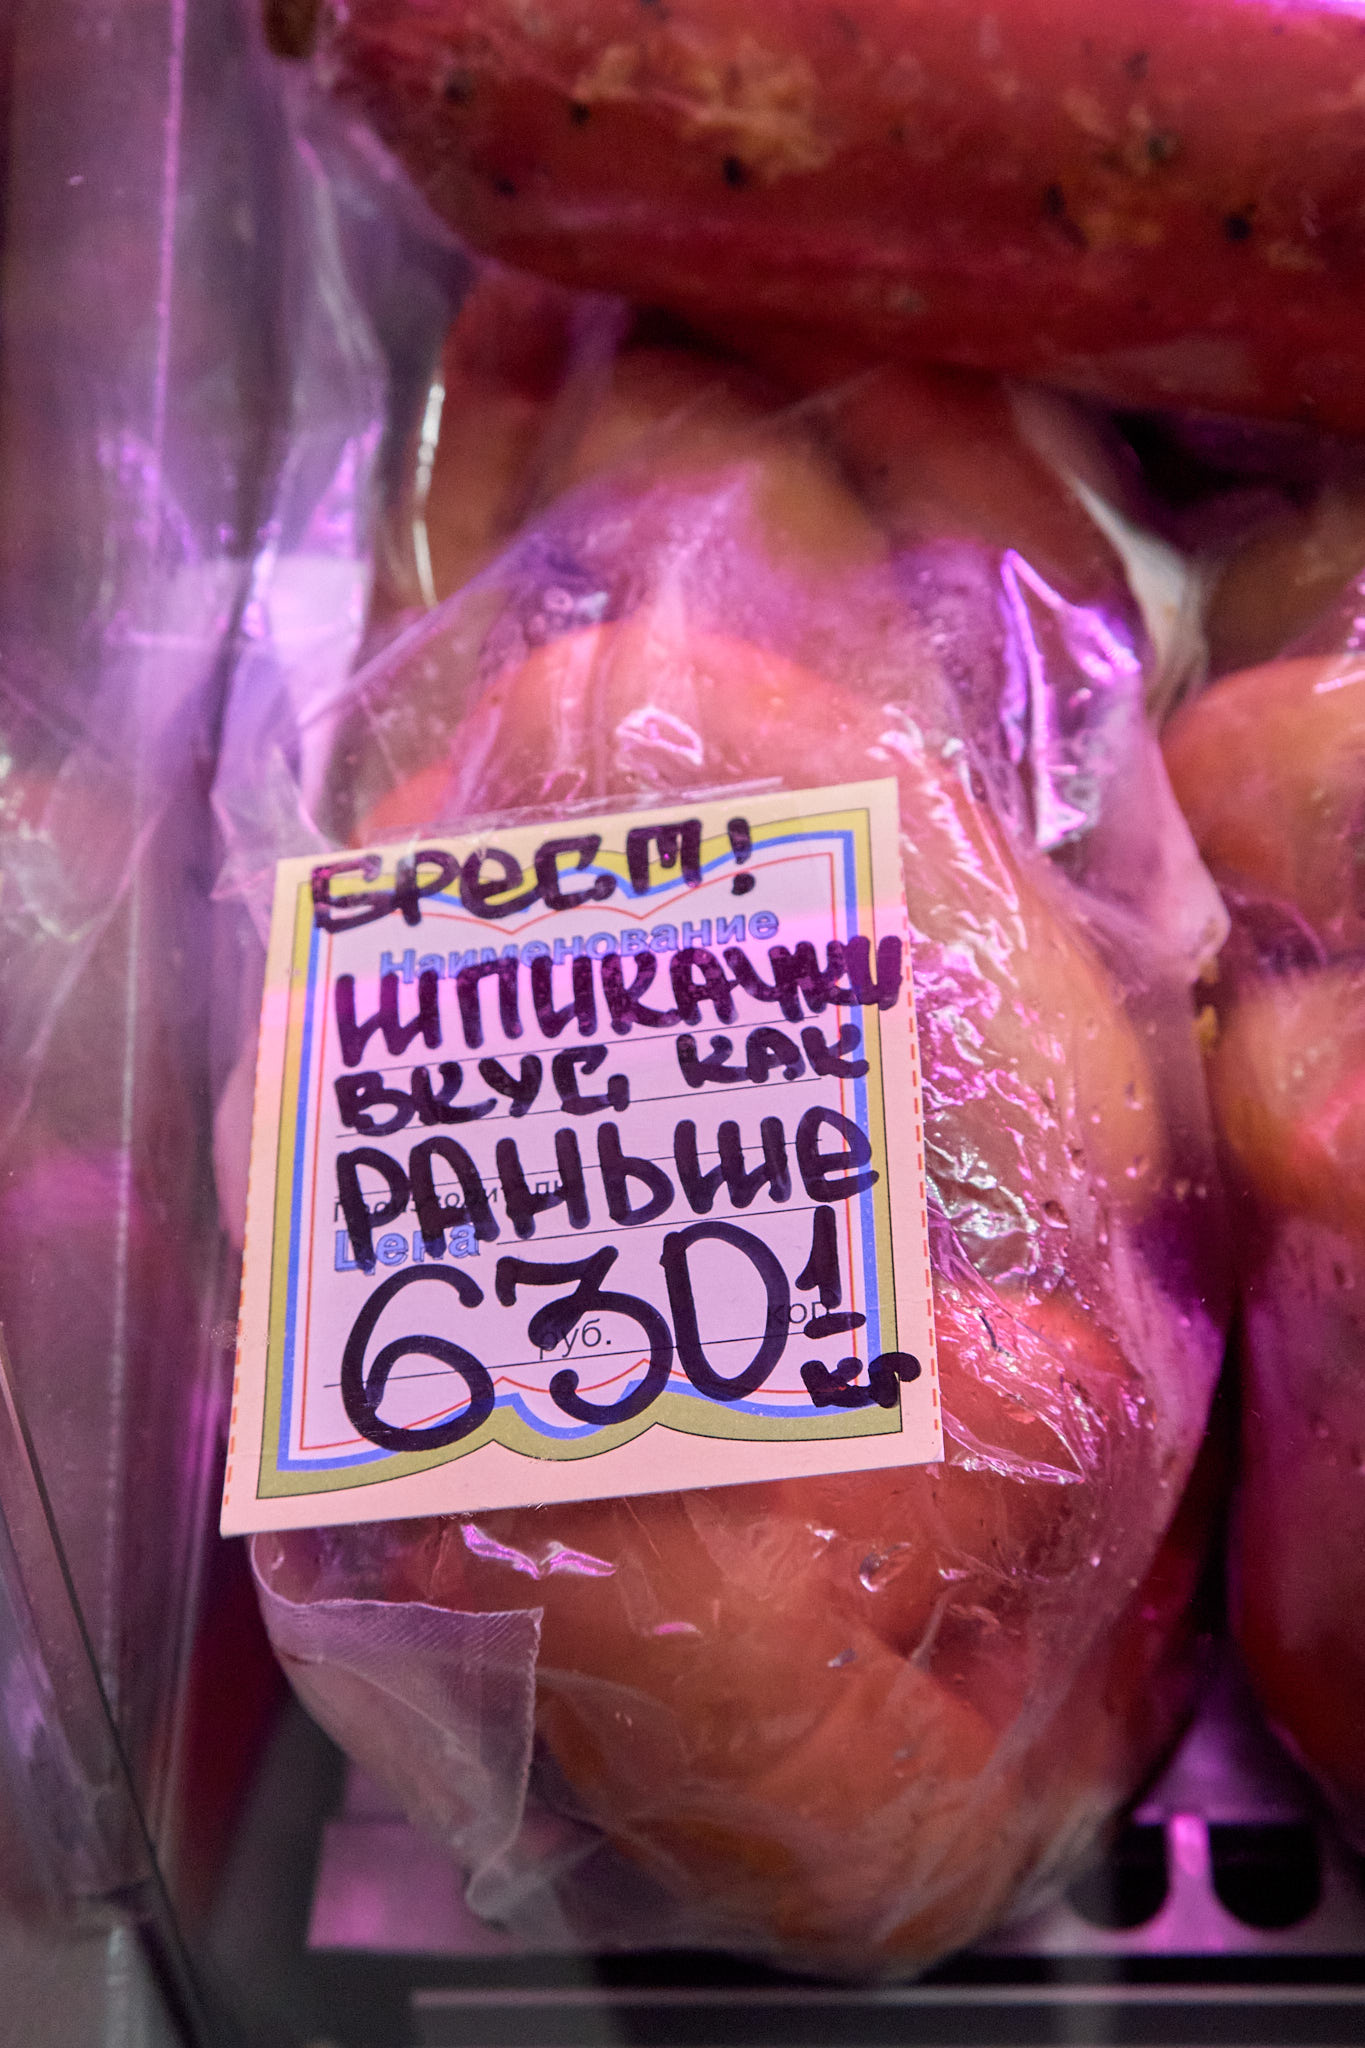 БРЕСТ!
Наименование
ШПИКАЧКИ
ВКУС КАК
РАНЬШЕ
производитель
Цена
630 1 кг
руб. коп.